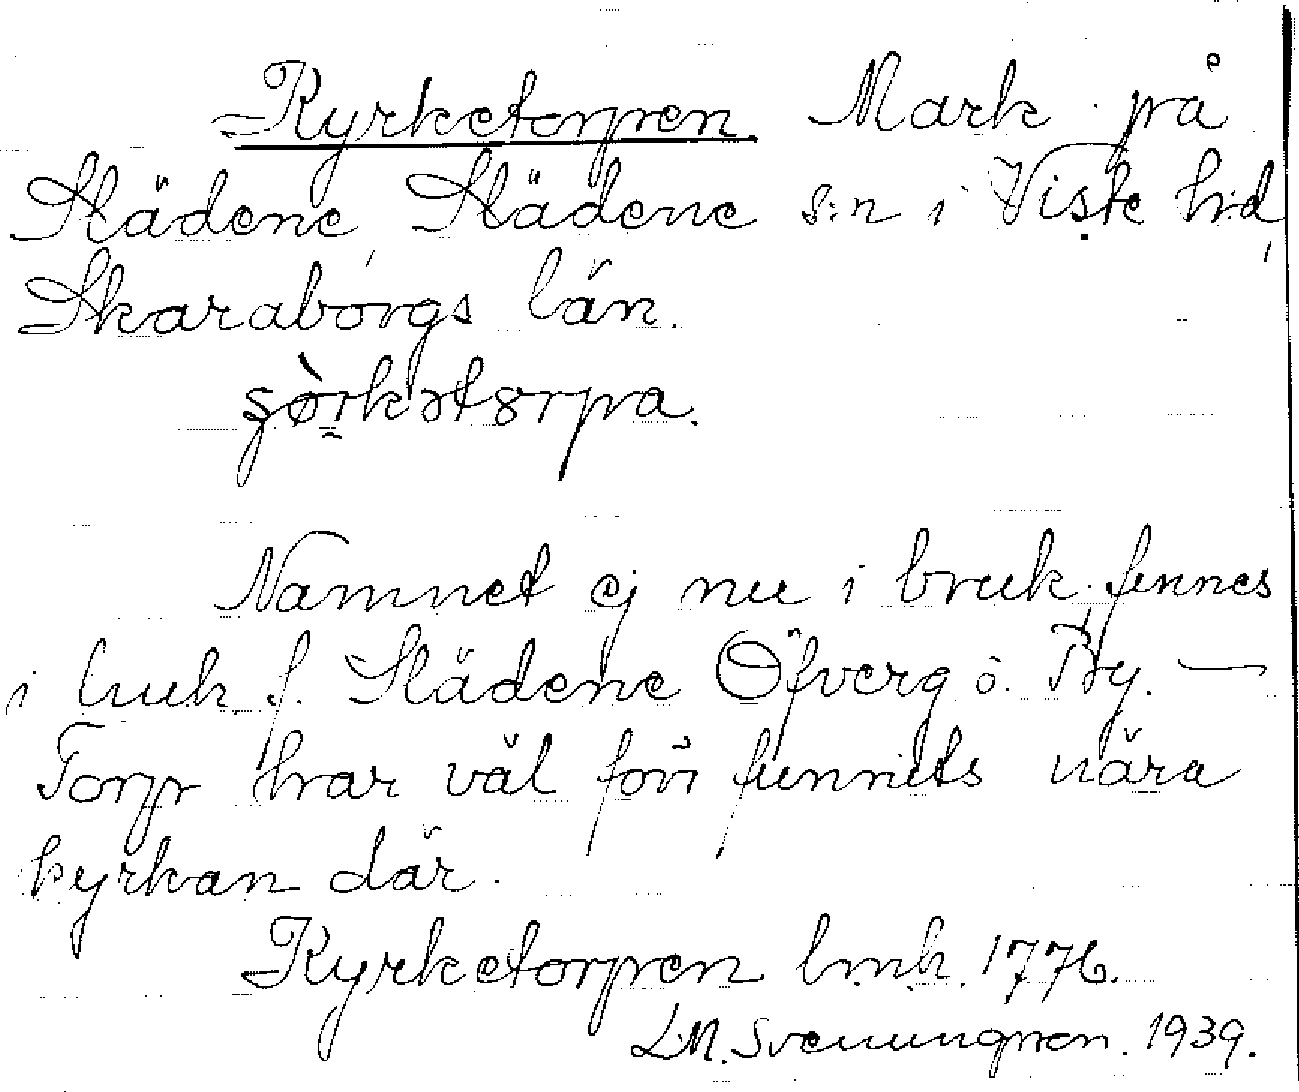 Kyrketorpen. Mark på
Slädene, Slädene s:n i Viste h:d,
Skaraborgs län.
şòrkətorpa.
Namnet ej nu i bruk, finnes
i luuk f. Slädene Öfverg o. By. —
Torp har väl förr funnits nära
kyrkan där.
Kyrketorpen lmh. 1776.
L.M. Svenungsson. 1939.